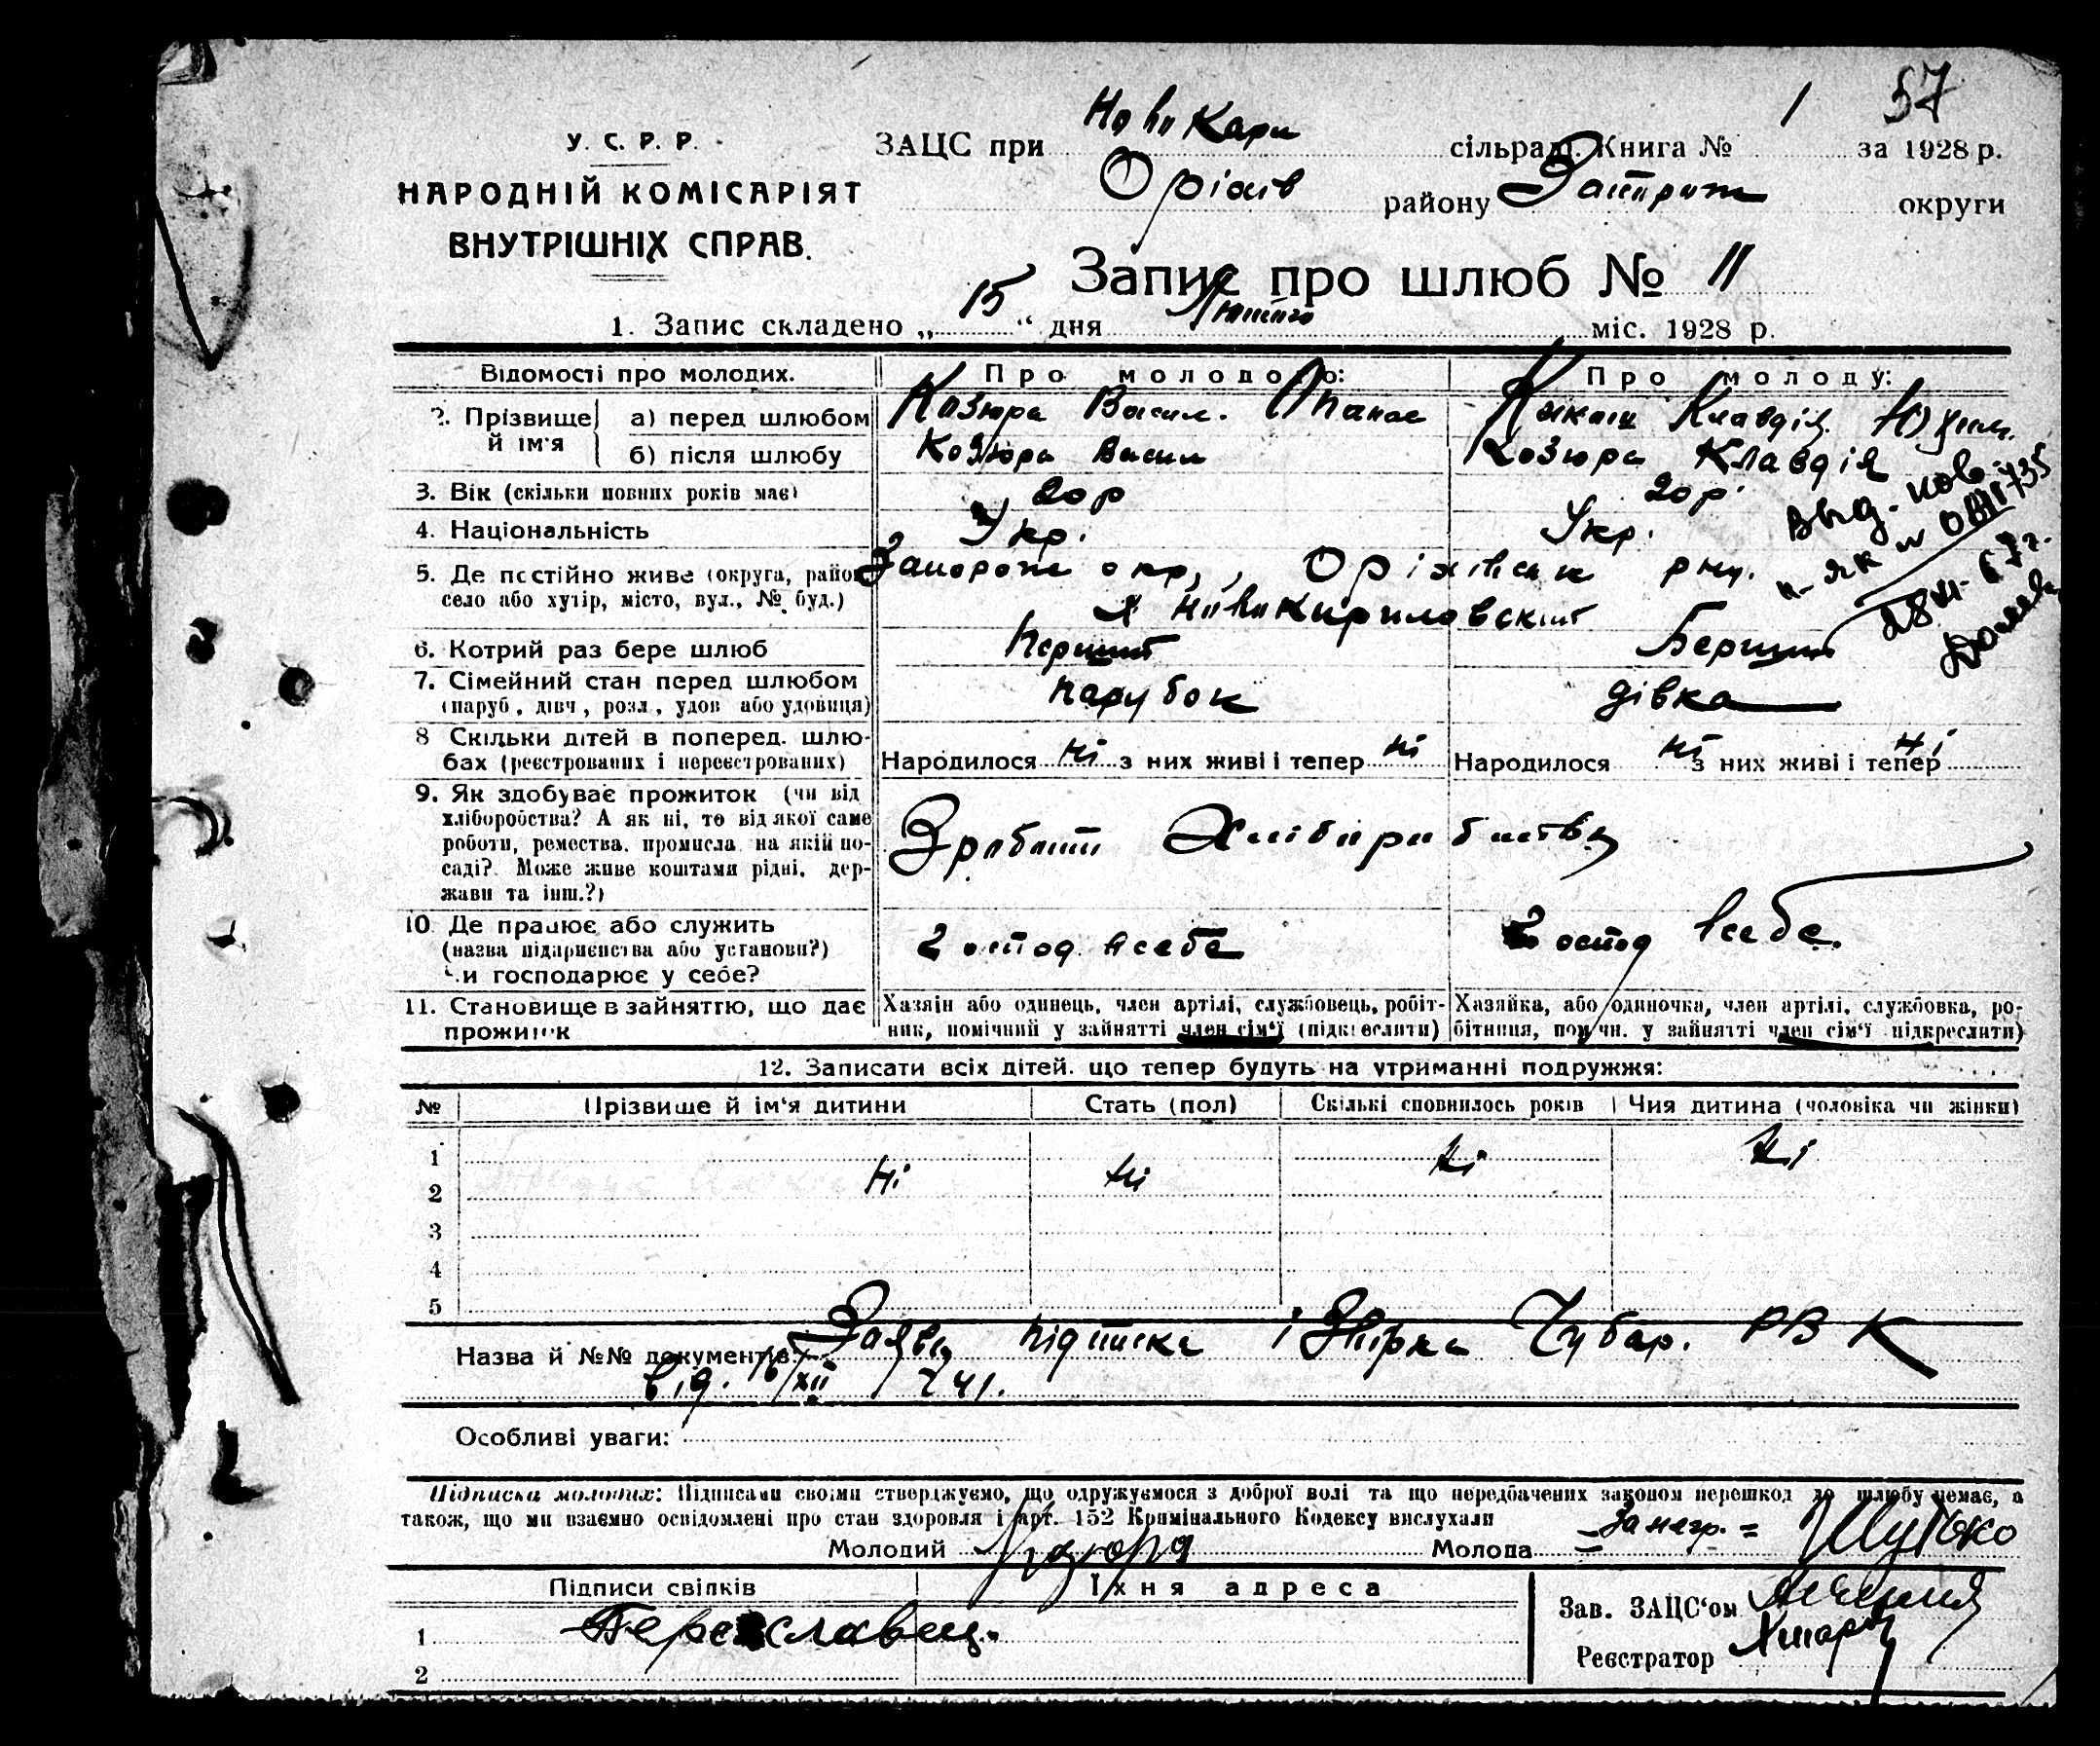 1 57
У. С. Р. Р.
НАРОДНІЙ КОМІСАРІЯТ
ВНУТРІШНІХ СПРАВ.
ЗАЦС при сільраді. Книга № за 1928 р.
району округи
Запис про шлюб № 11
1. Запис складено „ 15 “ дня Лютого міс. 1928 р.
Відомості про молодих. Про молодого: Про молоду:
2. Прізвище й ім'я
а) перед шлюбом Козюра Васил. Опанас Клавдія Юхим.
б) після шлюбу Козюра Васил Козюра Клавдія
3. Вік (скільки повних років має) 20 р 20 р.
4. Національність Укр. Укр.
5. Де постійно живе (округа, район, село або хутір, місто, вул., № буд.) Запорож окр., Оріхівськ рну.
Х Новокириловский
6. Котрий раз бере шлюб Перший
7. Сімейний стан перед шлюбом парубок дівка
(паруб., дівч., розл., удов. або удовиця)
8 Скільки дітей в поперед. шлюбах (реєстрованих і нереєстрованих) Народилося ні з них живі і тепер ні Народилося ні з них живі і тепер ні
9. Як здобуває прожиток (чи від
хліборобства? А як ні, то від якої саме
роботи, ремества, промисла, на якій посаді? Може живе коштами рідні, держави та інш.?)
10. Де працює або служить
(назва підприємства або установи?)
Чи господарює у себе? Господ всебе Господ всебе.
11. Становище в зайняттю, що дає прожиток
Хазяін або одинець, член артілі, службовець, робітник, помічний у зайнятті член сім'ї (підкреслити)
Хазяйка, або одиночка, член артілі, службовка, робітниця, помічн. у зайнятті член сім'ї підкреслити)
12. Записати всіх дітей, що тепер будуть на утриманні подружжя:
№ Прізвище й ім'я дитини Стать (пол) Скількі сповнилось років Чия дитина (чоловіка чи жінки)
1 ні ні
2 ні ні
3
4
5
Назва й №№ документів: Заява підписка і Збірка Чубар. РВК
від. 16/XII 241.
Особливі уваги:
Підписка молодих: Підписами своїми стверджуємо, що одружуємося з доброї волі та що передбачених законом перешкод до шлюбу немає, а
також, що ми взаємно освідомлені про стан здоровля і арт. 152 Кримінального Кодексу вислухали
Молодий Козюра Молода = За негр. =
Підписи свідків Їхня адреса
1 Переславец.
2
Зав. ЗАЦС'ом
Реєстратор